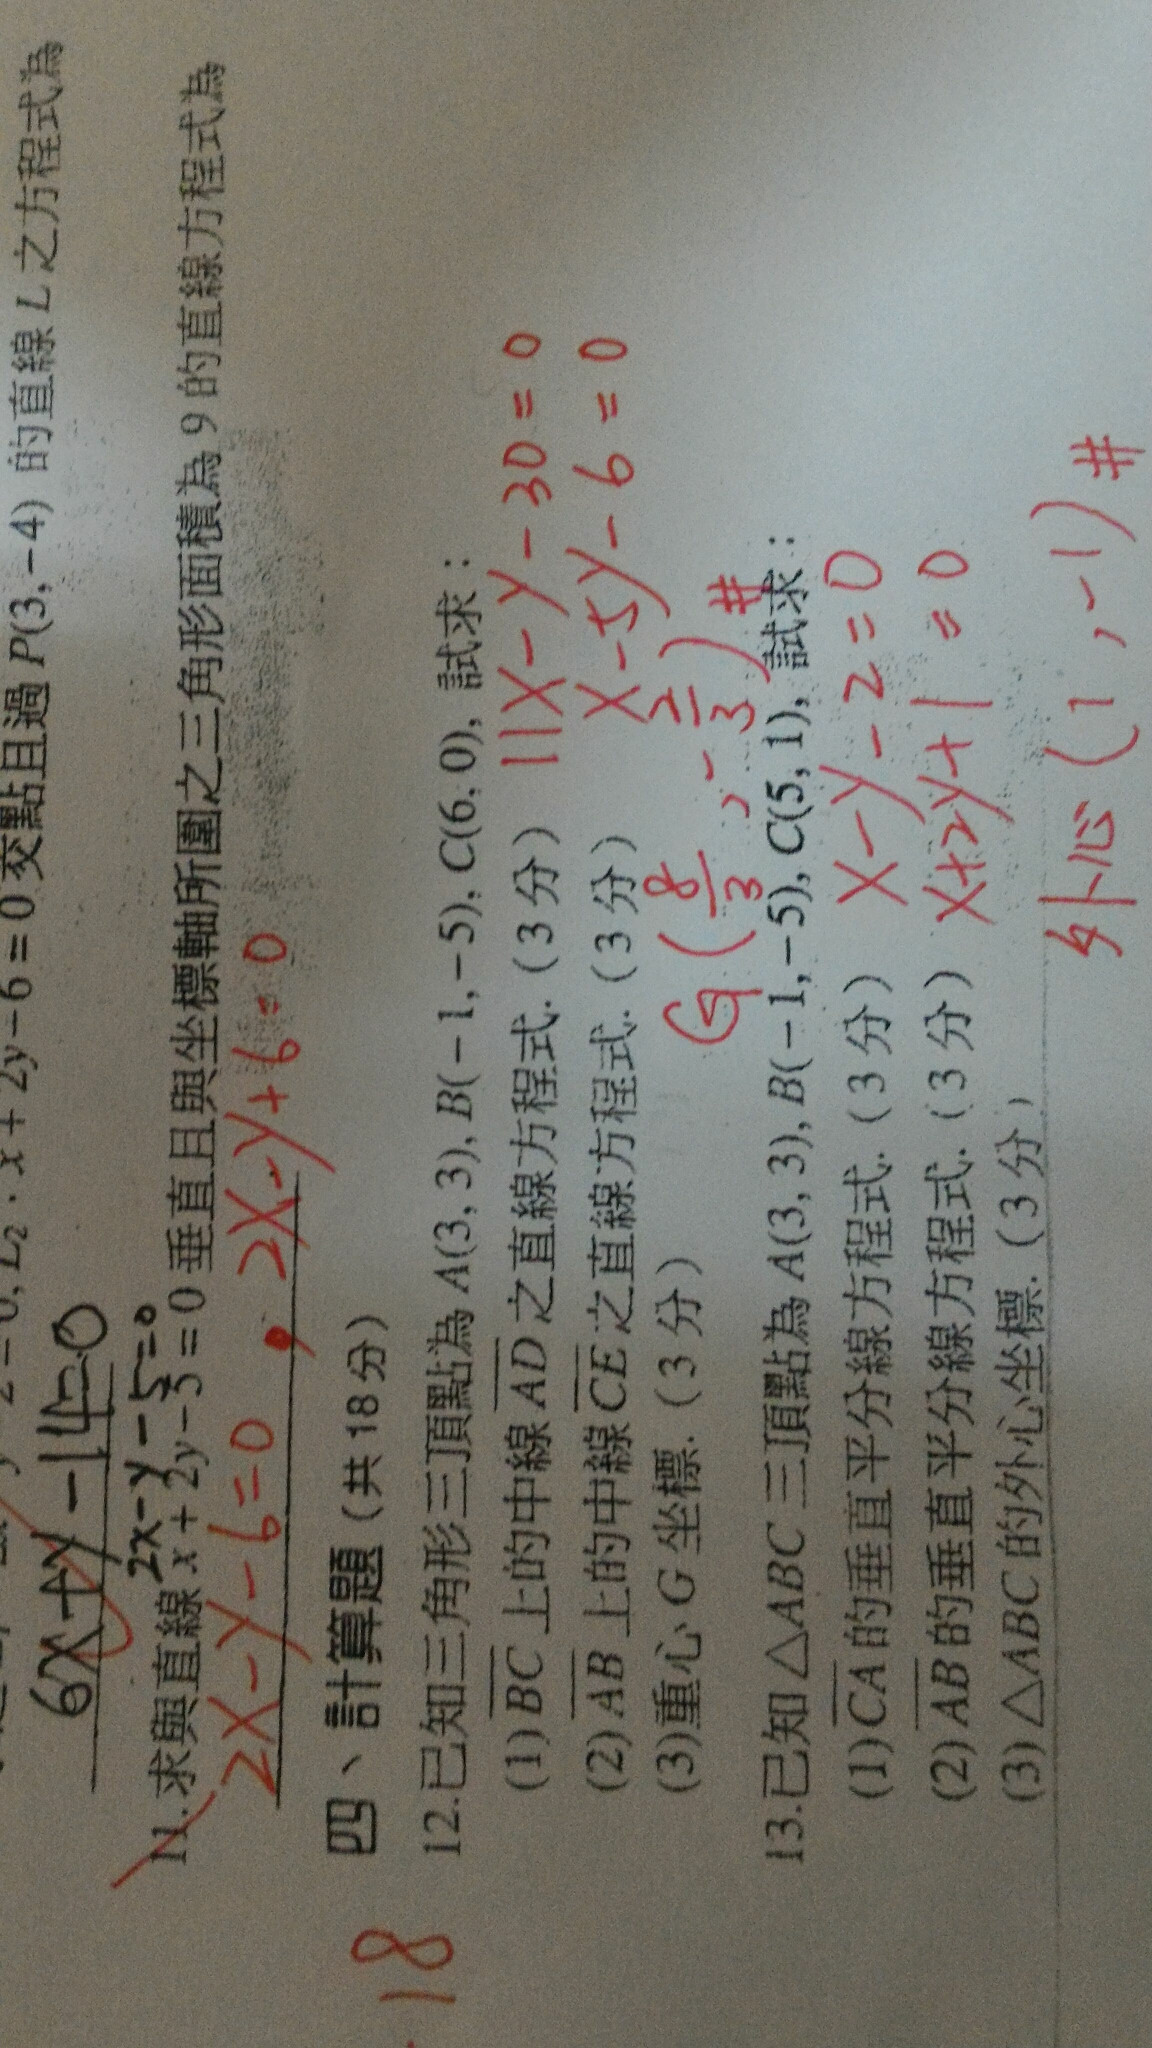 x + 2y − 6 = 0 交點且過 P(3, −4) 的直線 L 之方程式為
6x+y−14=0
2x−y−5=0
11. 求與直線 x + 2y − 5 = 0 垂直且與坐標軸所圍之三角形面積為 9 的直線方程式為
2x−y−6=0 , 2x−y+6=0
四、計算題（共 18 分）
−18
12.已知三角形三頂點為 A(3, 3), B(−1, −5), C(6, 0), 試求：
(1) BC 上的中線 AD 之直線方程式.（3 分） 11x−y−30=0
(2) AB 上的中線 CE 之直線方程式.（3 分） x−5y−6=0
(3)重心 G 坐標.（3 分） G(8/3, −2/3)#
13.已知 △ABC 三頂點為 A(3, 3), B(−1, −5), C(5, 1), 試求：
(1) CA 的垂直平分線方程式.（3 分） x−y−2=0
(2) AB 的垂直平分線方程式.（3 分） x+2y+1=0
(3) △ABC 的外心坐標.（3 分）
外心(1, −1)#